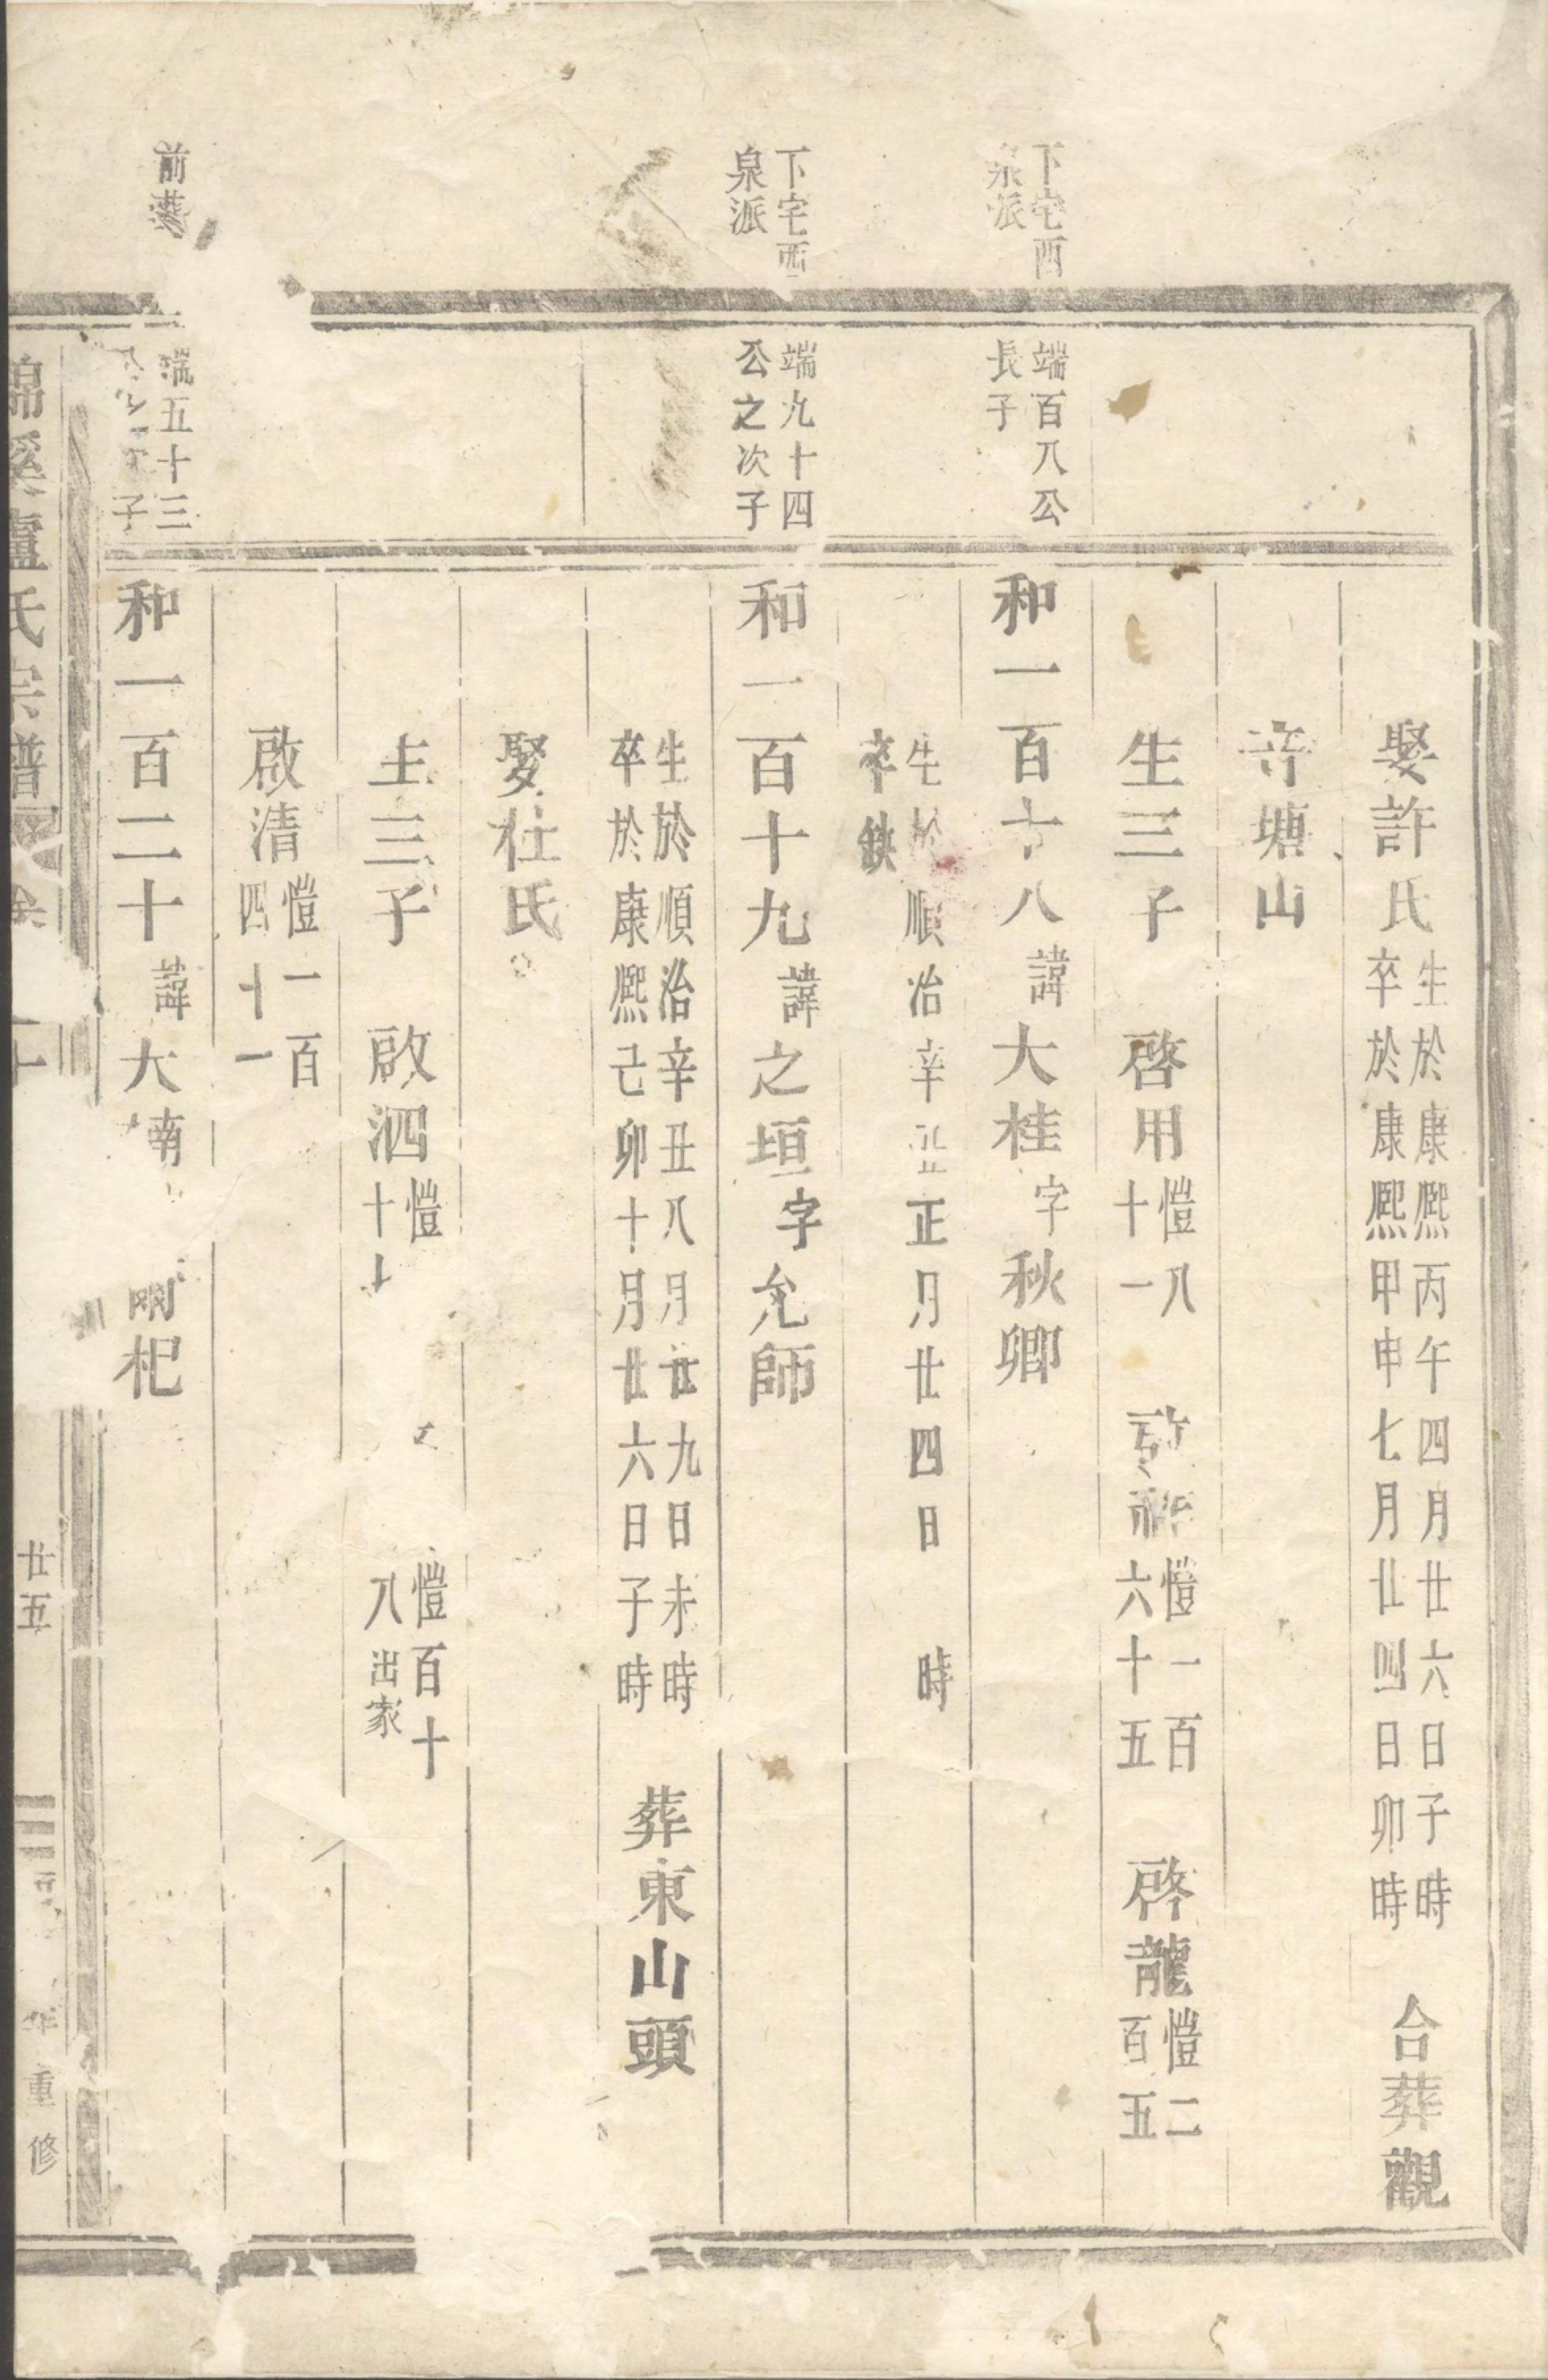 娶許氏 生於康熙丙午四月廿六日子時 卒於康熙甲申七月廿四日卯時 合葬觀
寺塘山
生三子 啓用 愷八十一 啓 愷一百六十五 啓龍 愷二百五
下宅西泉派
端百八公長子
和一百十八 諱大桂 字秋卿
生於順治辛丑正月廿四日 時 卒缺
下宅西泉派
端九十四公之次子
和一百十九 諱之垣 字允師
生於順治辛丑八月廿九日未時 卒於康熙己卯十月廿六日子時 葬東山頭
娶杜氏
生三子 啟泗 愷十 愷百十八 出家
啟清 愷一百四十一
前
端五十三 子
和一百二十 諱大南 杞
錦溪盧氏宗譜
廿五
年重修